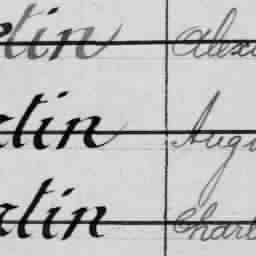 tin Alexa
tin Augu
tin Charl